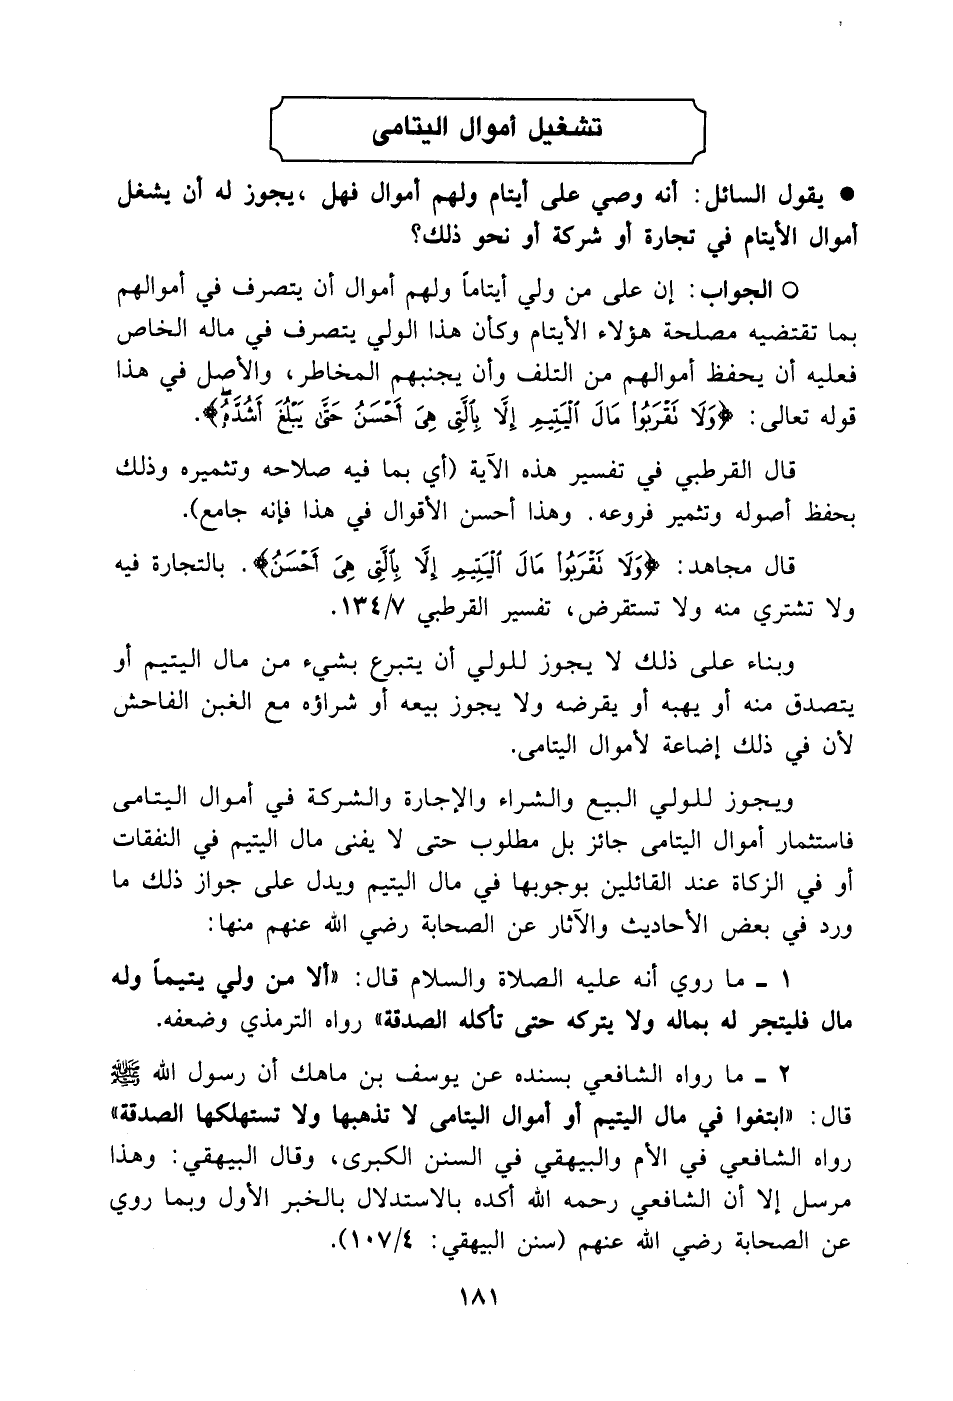 تشغيل أموال اليتامى
● يقول السائل: أنه وصي على أيتام ولهم أموال فهل ،يجوز له أن يشغل
أموال الأيتام في تجارة أو شركة أو نحو ذلك؟
○ الجواب: إن على من ولي أيتاماً ولهم أموال أن يتصرف في أموالهم
بما تقتضيه مصلحة هؤلاء الأيتام وكأن هذا الولي يتصرف في ماله الخاص
فعليه أن يحفظ أموالهم من التلف وأن يجنبهم المخاطر، والأصل في هذا
قوله تعالى: ﴿وَلَا نَقْرَبُوا۟ مَالَ ٱلْيَتِيمِ إِلَّا بِٱلَّتِى هِىَ أَحْسَنُ حَتَّىٰ يَبْلُغَ أَشُدَّهُۥۖ﴾.
قال القرطبي في تفسير هذه الآية (أي بما فيه صلاحه وتثميره وذلك
بحفظ أصوله وتثمير فروعه. وهذا أحسن الأقوال في هذا فإنه جامع).
قال مجاهد: ﴿وَلَا نَقْرَبُوا۟ مَالَ ٱلْيَتِيمِ إِلَّا بِٱلَّتِى هِىَ أَحْسَنُ﴾. بالتجارة فيه
ولا تشتري منه ولا تستقرض، تفسير القرطبي ١٣٤/٧.
وبناء على ذلك لا يجوز للولي أن يتبرع بشيء من مال اليتيم أو
يتصدق منه أو يهبه أو يقرضه ولا يجوز بيعه أو شراؤه مع الغبن الفاحش
لأن في ذلك إضاعة لأموال اليتامى.
ويجوز للولي البيع والشراء والإجارة والشركة في أموال اليتامى
فاستثمار أموال اليتامى جائز بل مطلوب حتى لا يفنى مال اليتيم في النفقات
أو في الزكاة عند القائلين بوجوبها في مال اليتيم ويدل على جواز ذلك ما
ورد في بعض الأحاديث والآثار عن الصحابة رضي الله عنهم منها:
١ - ما روي أنه عليه الصلاة والسلام قال: «ألا من ولي يتيماً وله
مال فليتجر له بماله ولا يتركه حتى تأكله الصدقة» رواه الترمذي وضعفه.
٢ - ما رواه الشافعي بسنده عن يوسف بن ماهك أن رسول الله ﷺ
قال: «ابتغوا في مال اليتيم أو أموال اليتامى لا تذهبها ولا تستهلكها الصدقة»
رواه الشافعي في الأم والبيهقي في السنن الكبرى، وقال البيهقي: وهذا
مرسل إلا أن الشافعي رحمه الله أكده بالاستدلال بالخبر الأول وبما روي
عن الصحابة رضي الله عنهم (سنن البيهقي: ١٠٧/٤).
١٨١